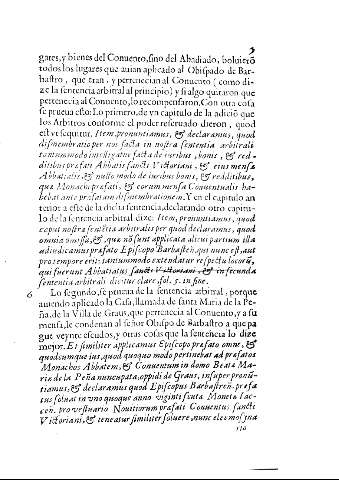 5
gares, y bienes del Conuento, sino del Abadiado, boluierō
todos los lugares que auian aplicado al Obispado de Bar-
bastro, que eran, y pertenecian al Conuento (como di-
ze la sentencia arbitral al principio) y si algo quitaron que
pertenecia al Conuento, lo recompensaron. Con otra cosa
se prueua esto: Lo primero, de vn capitulo de la adiciō que
los Arbitros conforme el poder reseruado dieron, quod
est vt sequitur. Item, pronuntiamus, & declaramus, quod
dismembratio per nos facta in nostra sententia arbitrali
tantummodo intelligatur facta de iuribus, bonis, & red-
ditibus præfati Abbatis sancti Victoriani, & eius mensæ
Abbatialis, & nullo modo de iuribus, bonis, & redditibus,
quæ Monachi præfati, & eorum mensa Conuentualis ha-
bebat ante præfatam dismembrationem. Y en el capitulo an
tenor: a esse de la dicha sentencia, declarando otro capitu-
lo de la sentencia arbitral dize: Item, pronuntiamus, quod
caput nostræ sententiæ arbitralis per quod declaramus, quod
omnia omissa, &, quæ nō sunt applicata alicui partium illa
adiudicamus præfato Episcopo Barbastren. qui nunc est, aut
pro tempore erit: tantummodo extendatur respectu locorū,
qui fuerunt Abbatiatus sancti Victoriani, & in secunda
sententia arbitrali dictus clares fol. 5. in fine.
6 Lo segundo, se prueua de la sentencia arbitral, porque
auiendo aplicado la Casa, llamada de santa Maria de la Pe-
ña, de la Villa de Graus, que pertenecia al Conuento, y a su
mensa, le condenan al señor Obispo de Barbastro a que pa
gue veynte escudos, y otras cosas que la sentencia lo dize
mejor. Et similiter applicamus Episcopo præfato omne, &
quodcumque ius, quod quoquo modo pertinebat ad præfatos
Monachos Abbatem, & Conuentum in domo Beatæ Ma-
riæ de la Peña nuncupata, oppidi de Graus, insuper pronū-
tiamus, & declaramus quod Episcopus Barbastren. præfa
tus soluat in vno quoque anno viginti scuta Monetæ Iac-
cen. pro vestuario Nouitiorum præfati Conuentus sancti
Victoriani, & teneatur similiter soluere, nunc eleemosyna